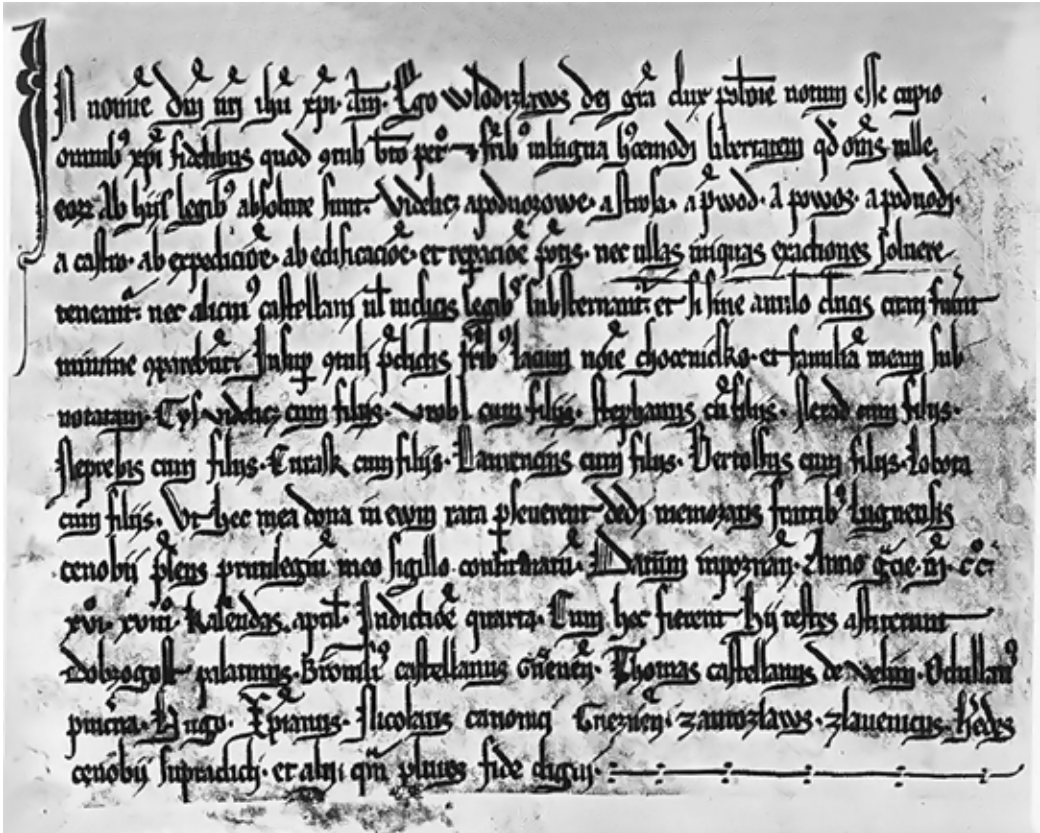 In nomĩe dñi nr̃i ihũ xp̃i. am̃. Ego wlodizlaws dei gr̃a dux połonie notum esse cupio
omnib⁹ xp̃i fidelibus quod ꝯtuli bt̃o pet° ⁊ fr̃ib⁹ libertatem qđ om̃s uille
eoꝝ ab hijs legib⁹ absolute sunt. Videlicet apoduorowe. a strosa. a p̃wod. a powoz. a
a castro. ab expedicõe. ab edificacõe. et reꝑacõe põtis. nec ullas iniquas exactiones soluere
teneant᷑. nec alicui⁹ castellani ul̃ iudicis legib⁹ substernant᷑. et si sine anulo ducis citati fũint
minime ꝯparebũt. Insuꝑ ꝯtuli p̃dictis fr̃ib⁹ lacum nõie chocenicsko. et familiã meam sub
notatam. videlicet cum filijs. cum filijs. Stephanus cũ filijs. Nerad cum filijs.
Neprebis cum filijs. Curassk cum filijs. Laurencius cum filijs. Bertoltus cum filijs. Lobota
cum filijs. Vt hec mea dona in ewm rata ꝑseuerent dedi memoratis fratrib⁹
cenobij p̃sens priuilegiũ meo sigillo confirmatũ. Datum inpoznañ. Anno gr̃cie. m̃. c°c°
xvi°. xviii°. kalendas. april̃. Indictiõe quarta. Cum hec fierent hij testes astiterunt
Dobrogost palatinus. castellanus Gneznẽñ. Thomas castellanus de
pincerna. Hugo. Xp̃ianus. Nicolaus canonici Gneznẽñ. zauozlaws. zlauenicus. h̃edes
cenobij supradicti. et alij qm̃ plures fide digni.